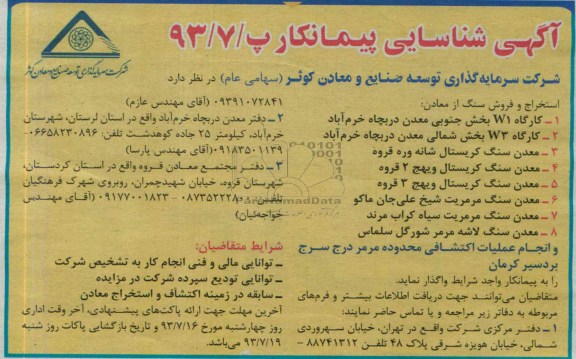 آگهی شناسایی پیمانکار پ/۹۳/۷
شرکت سرمایه‌گذاری توسعه صنایع و معادن کوثر
شرکت سرمایه‌گذاری توسعه صنایع و معادن کوثر (سهامی عام) در نظر دارد
استخراج و فروش سنگ از معادن:
۱ – کارگاه W۱ بخش جنوبی معدن دربچاه خرم‌آباد
۲ – کارگاه W۳ بخش شمالی معدن دربچاه خرم‌آباد
۳ – معدن سنگ کریستال شانه وره قروه
۴ – معدن سنگ کریستال ویهج ۲ قروه
۵ – معدن سنگ کریستال ویهج ۳ قروه
۶ – معدن سنگ مرمریت شیخ علی‌جان ماکو
۷ – معدن سنگ مرمریت سیاه کراب مرند
۸ – معدن سنگ لاشه مرمر شورگل سلماس
و انجام عملیات اکتشافی محدوده مرمر درج سرج
بردسیر کرمان
را به پیمانکار واجد شرایط واگذار نماید.
متقاضیان می‌توانند جهت دریافت اطلاعات بیشتر و فرم‌های
مربوطه به دفاتر زیر مراجعه و یا تماس حاصر نمایند:
۱ – دفتر مرکزی شرکت واقع در تهران، خیابان سهروردی
شمالی، خیابان هویزه شرقی پلاک ۴۸ تلفن ۸۸۷۴۱۳۱۲ –
۰۹۳۹۱۰۷۲۸۴۱ (آقای مهندس عازم)
۲ – دفتر معدن دربچاه خرم‌آباد واقع در استان لرستان، شهرستان
خرم‌آباد، کیلومتر ۲۵ جاده کوهدشت تلفن: ۰۶۶۵۸۲۳۰۸۹۶ –
۰۹۱۸۳۵۰۱۱۳۹ (آقای مهندس پارسا)
۳ – دفتر مجتمع معادن قروه واقع در استان کردستان،
شهرستان قروه، خیابان شهیدچمران، روبروی شهرک فرهنگیان
تلفن: ۰۸۷۳۵۲۲۲۸ – ۰۹۱۷۷۰۰۱۸۲۳ (آقای مهندس
خواجه‌ئیان)
شرایط متقاضیان:
– توانایی مالی و فنی انجام کار به تشخیص شرکت
– توانایی تودیع سپرده شرکت در مزایده
– سابقه در زمینه اکتشاف و استخراج معادن
آخرین مهلت جهت ارائه پاکت‌های پیشنهادی، آخر وقت اداری
روز چهارشنبه مورخ ۹۳/۷/۱۶ و تاریخ بازگشایی پاکات روز شنبه
۹۳/۷/۱۹ می‌باشد.